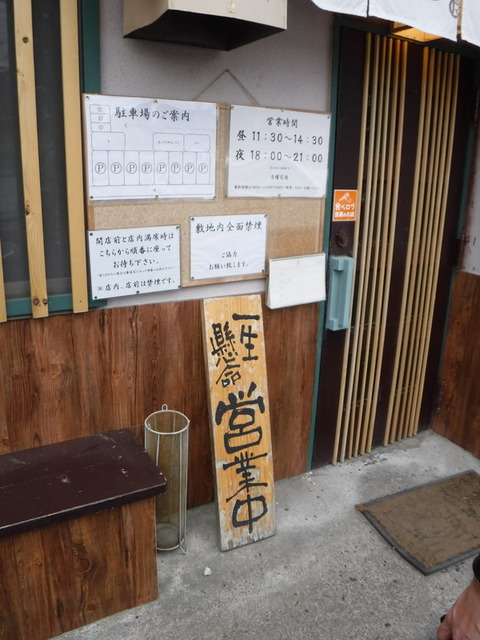 駐車場のご案内
P P P P P P P P
営業時間
昼 11:30～14:30
夜 18:00～21:00
月曜定休
開店前と店内満席時は
こちらから順番に座って
お待ち下さい。
※店内、店前は禁煙です。
敷地内全面禁煙
ご協力
お願い致します。
食べログ
一生
懸命
営業中